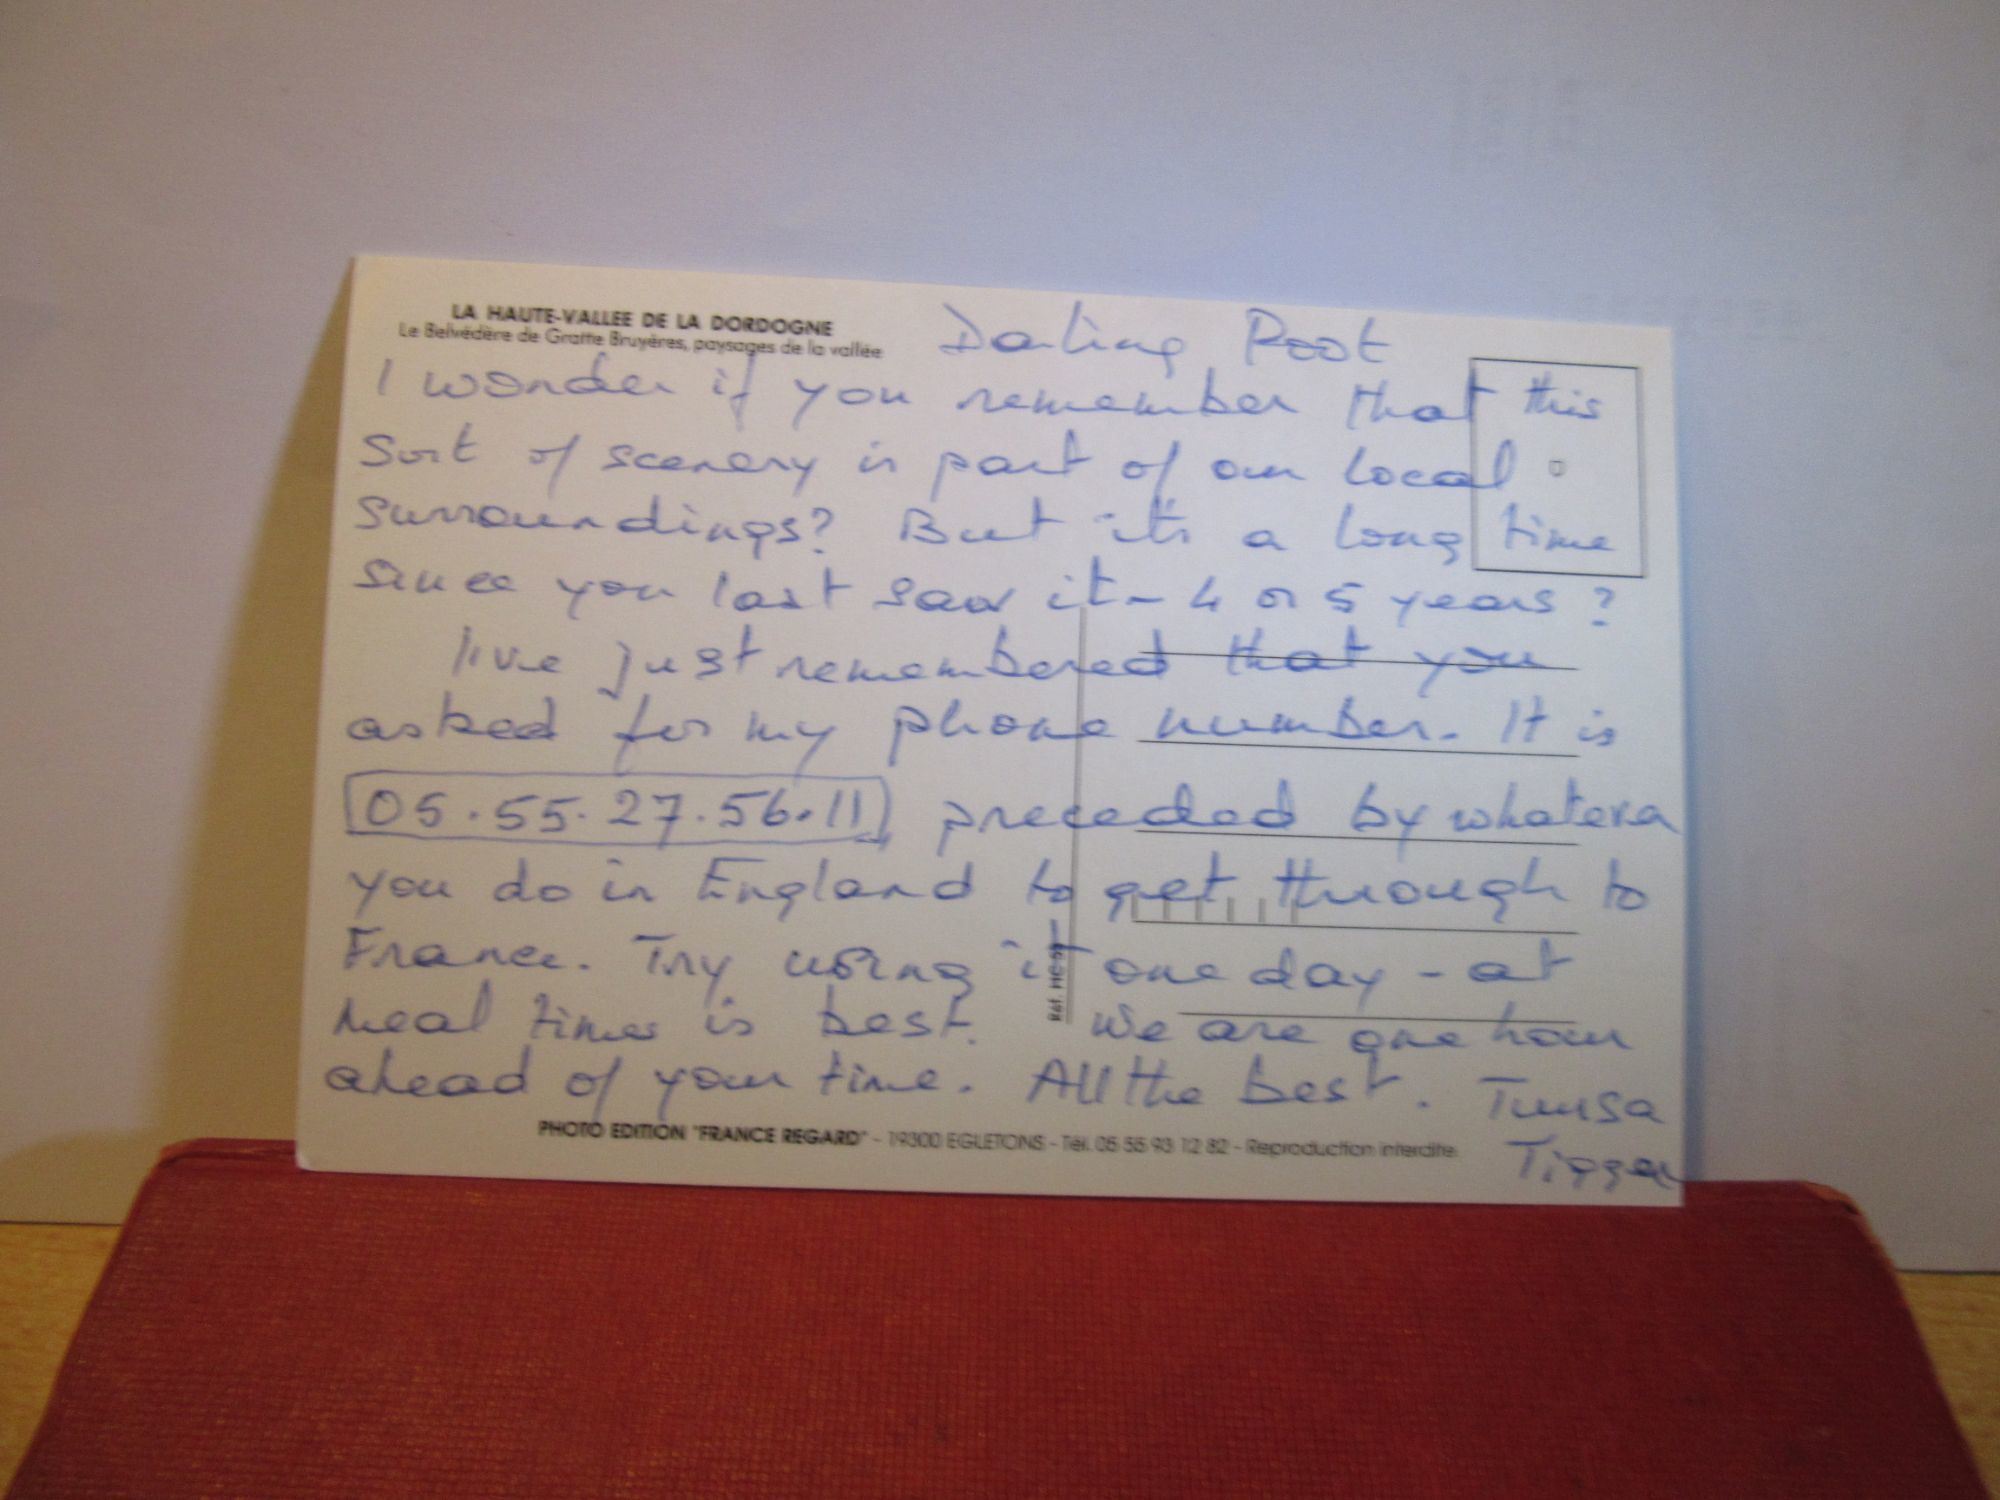 LA HAUTE-VALLEE DE LA DORDOGNE
Le Belvédère de Gratte Bruyères, paysages de la vallée
Darling Poot
I wonder if you remember that this
sort of scenery is part of our local
surroundings? But it's a long time
since you last saw it - 4 or 5 years?
I've just remembered that you
asked for my phone number. It is
05.55.27.56.11 preceded by whatever
you do in England to get through to
France. Try using it one day - at
meal times is best. We are one hour
ahead of your time. All the best.
Tigger
Réf. HC
PHOTO EDITION "FRANCE REGARD" - 19300 EGLETONS - Tél. 05 55 93 12 82 - Reproduction interdite